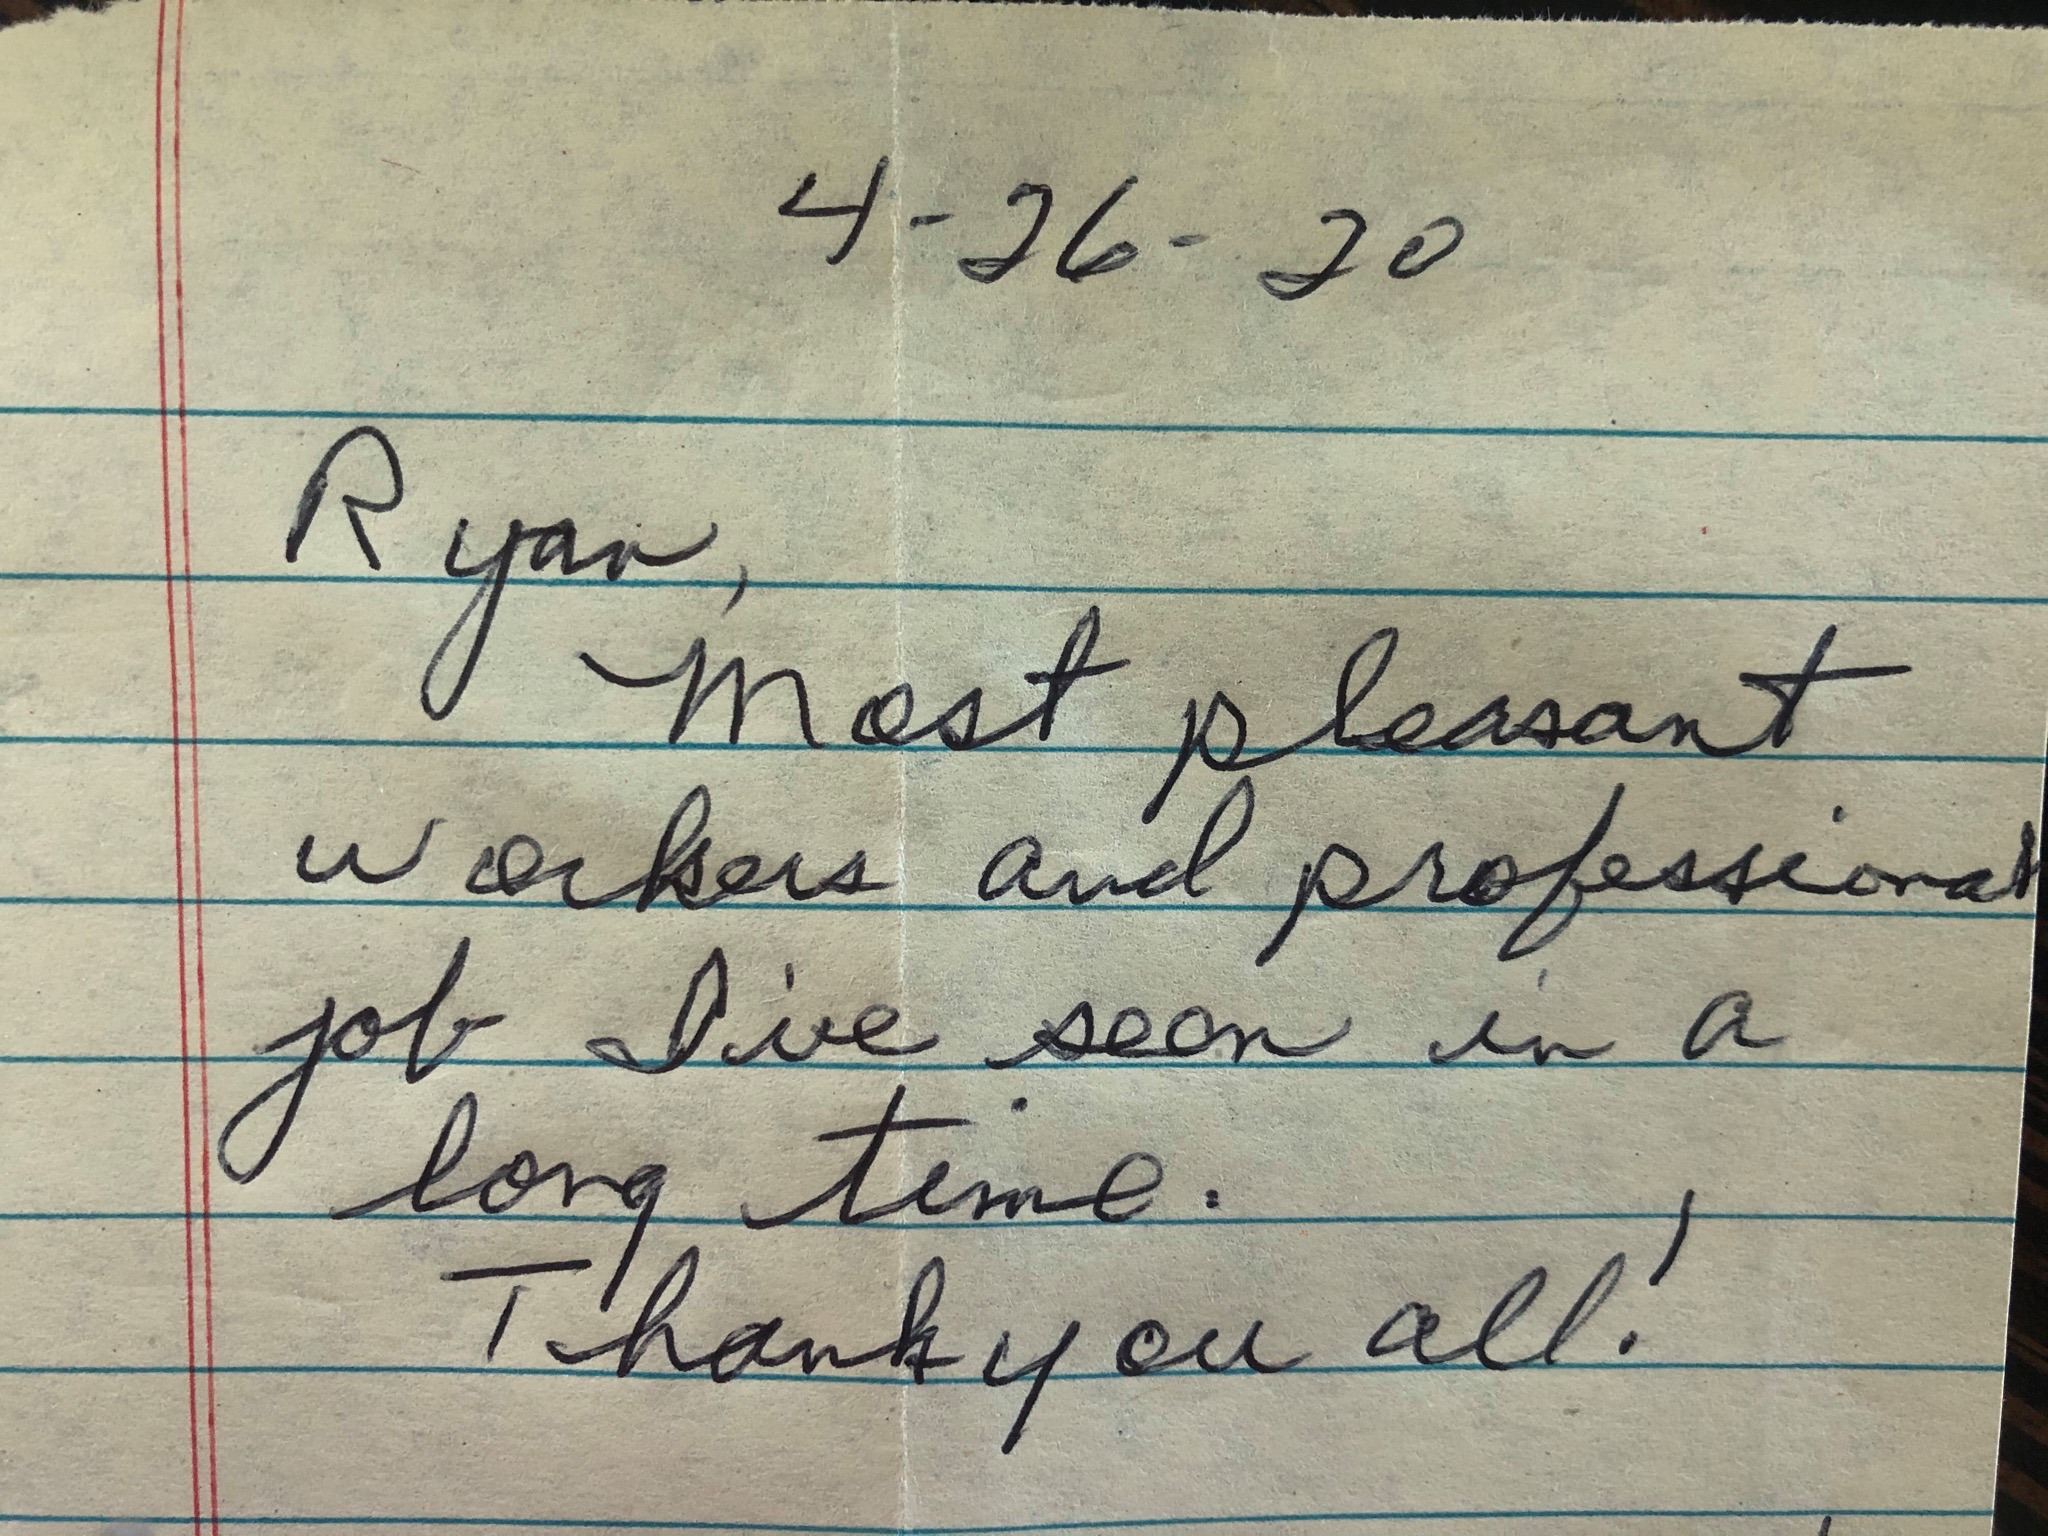 4-26-20
Ryan,
Most pleasant
workers and professional
job I've seen in a
long time.
Thank you all!